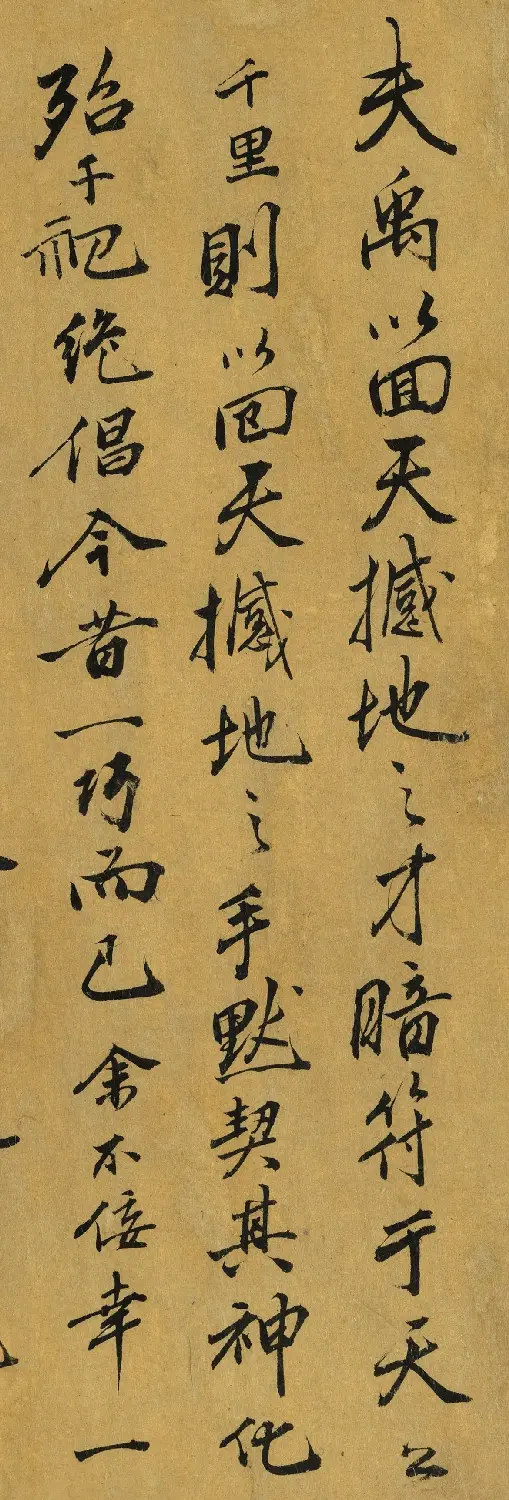 夫禹以回天撼地之才暗符于天公
千里則以回天撼地之手默契其神化
殆千祀絶倡今昔一巧而已余不佞幸一